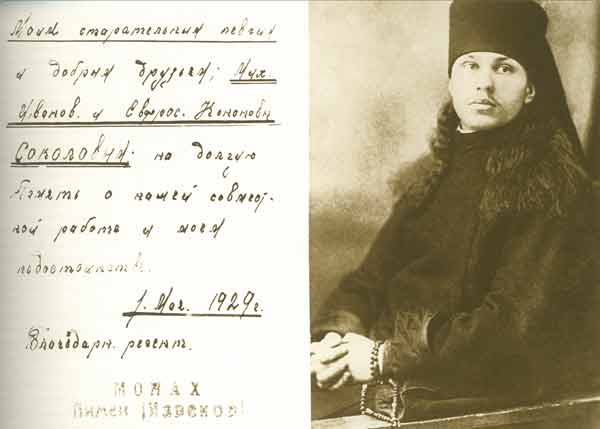 Моим старательным певчим
и добрым друзьям; Мих.
Иванов. и Евфрос. Кононовн.
Соколовым: на долгую
Память о нашей совмест-
ной работе и моем
недостоинстве.
1. Июл. 1929 г.
Благодарн. регент.
МОНАХ
Пимен (Извеков)